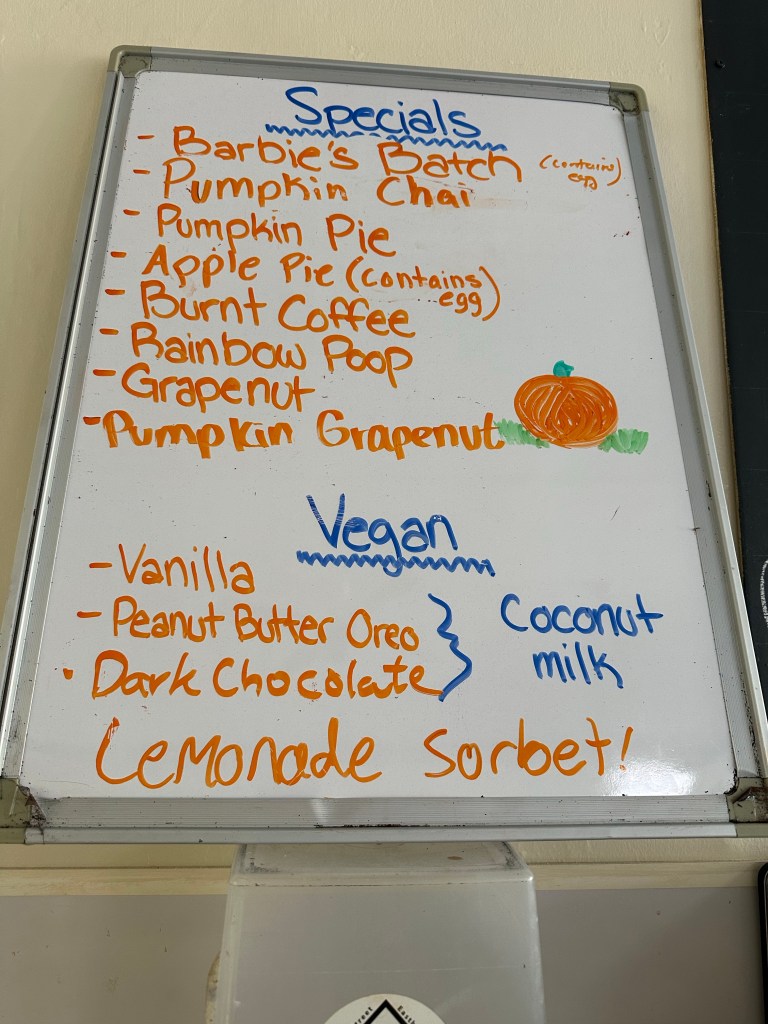 Specials
- Barbie's Batch (contains egg)
- Pumpkin Chai
- Pumpkin Pie
- Apple Pie (contains egg)
- Burnt Coffee
- Rainbow Poop
- Grapenut
- Pumpkin Grapenut
Vegan
- Vanilla
- Peanut Butter Oreo
· Dark Chocolate
Coconut
milk
Lemonade Sorbet!